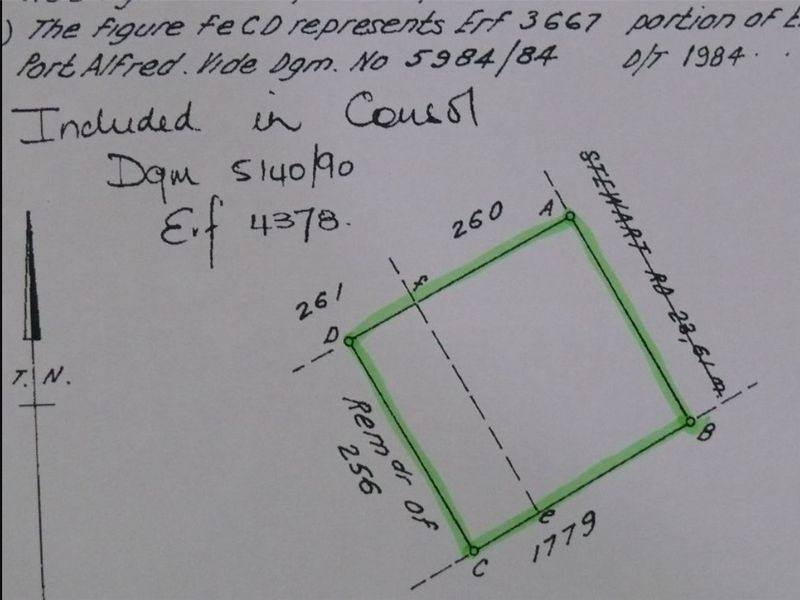 ) The figure feCD represents Erf 3667 portion of E
Port Alfred. Vide Dgm. No 5984/84 D/T 1984.
Included in Consol
Dgm 5140/90
Erf 4378.
STEWART RD 23,61 m
260
A
f
261
D
T. N.
Remdr of
256
B
e
1779
C